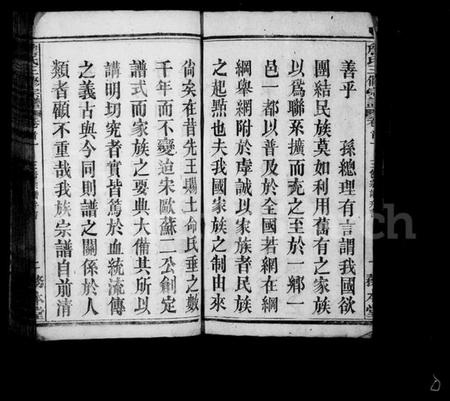 善乎 孫總理有言謂我國欲
團結民族莫如利用舊有之家族
以爲聯系擴而充之至於一鄉一
邑一都以普及於全國若網在綱
綱舉網附於虖誠以家族者民族
之起點也夫我國家族之制由來
尙矣在昔先王賜土命氏垂之數
千年而不變迨宋歐蘇二公創定
譜式而家族之要典大備其所以
講明切究者實皆篤於血統流傳
之義古與今同則譜之關係於人
類者顧不重哉我族宗譜自前清